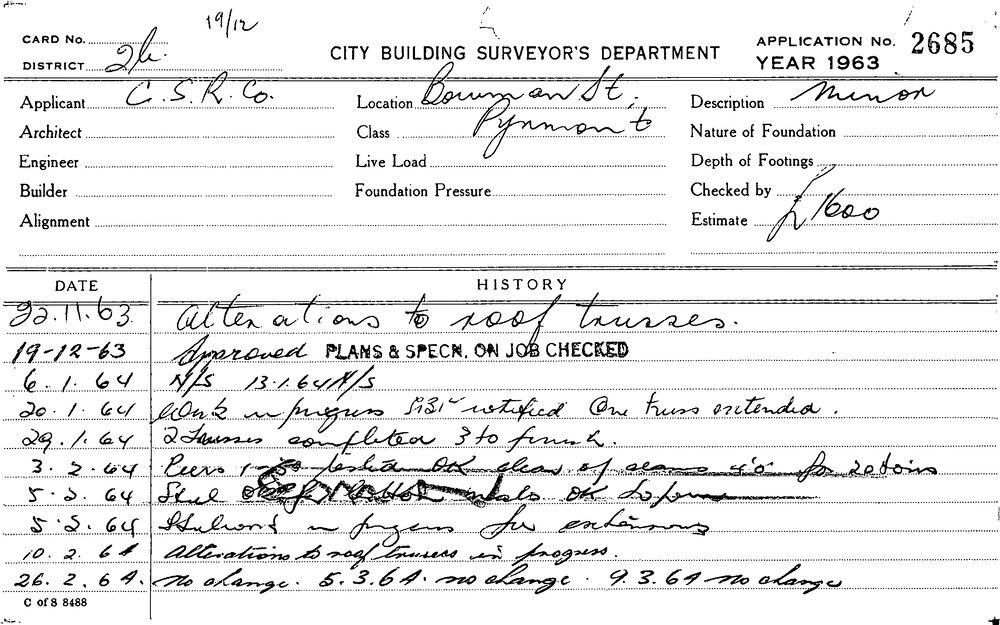 19/12
CARD No.
DISTRICT 2b.
CITY BUILDING SURVEYOR'S DEPARTMENT
APPLICATION No. 2685
YEAR 1963
Applicant C.S.R. Co.
Location Bowman St,
Description Minor
Architect
Class Pyrmont
Nature of Foundation
Engineer
Live Load
Depth of Footings
Builder
Foundation Pressure
Checked by
Alignment
Estimate £1600
DATE HISTORY
22.11.63 Alterations to roof trusses.
19-12-63 Approved PLANS & SPECN. ON JOB CHECKED
6.1.64 N/S 13.1.64 N/S
20.1.64 Work in progress notified One truss extended.
29.1.64 2 Trusses completed 3 to finish.
3.2.64 Piers tested OK clear of for
5.2.64 Steel OK
5.2.64 Steelwork in progress for extensions
10.2.64 Alterations to roof trusses in progress.
26.2.64. no change. 5.3.64. no change. 9.3.64 no change
C of S 8488